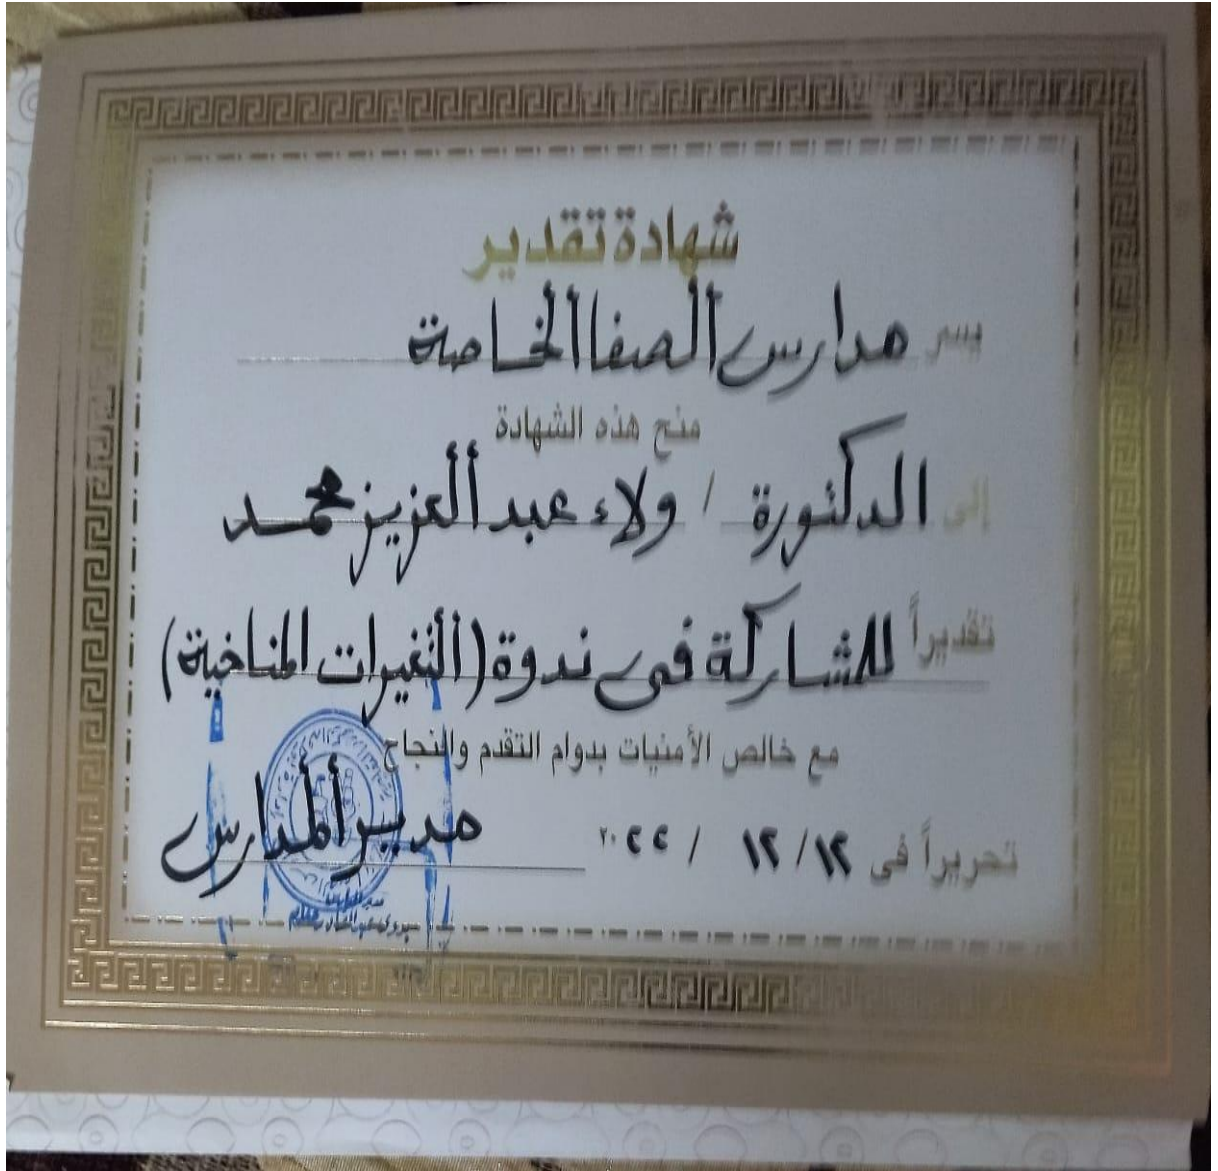 شهادة تقدير
يسر مدارس الصفا الخاصة
منح هذه الشهادة
إلى الدكتورة / ولاء عبد العزيز محمد
تقديراً للمشاركة فى ندوة (التغيرات المناخية)
مع خالص الأمنيات بدوام التقدم والنجاح
تحريراً فى ١٢/ ١٢ / ٢٠٢٢
مدير المدارس